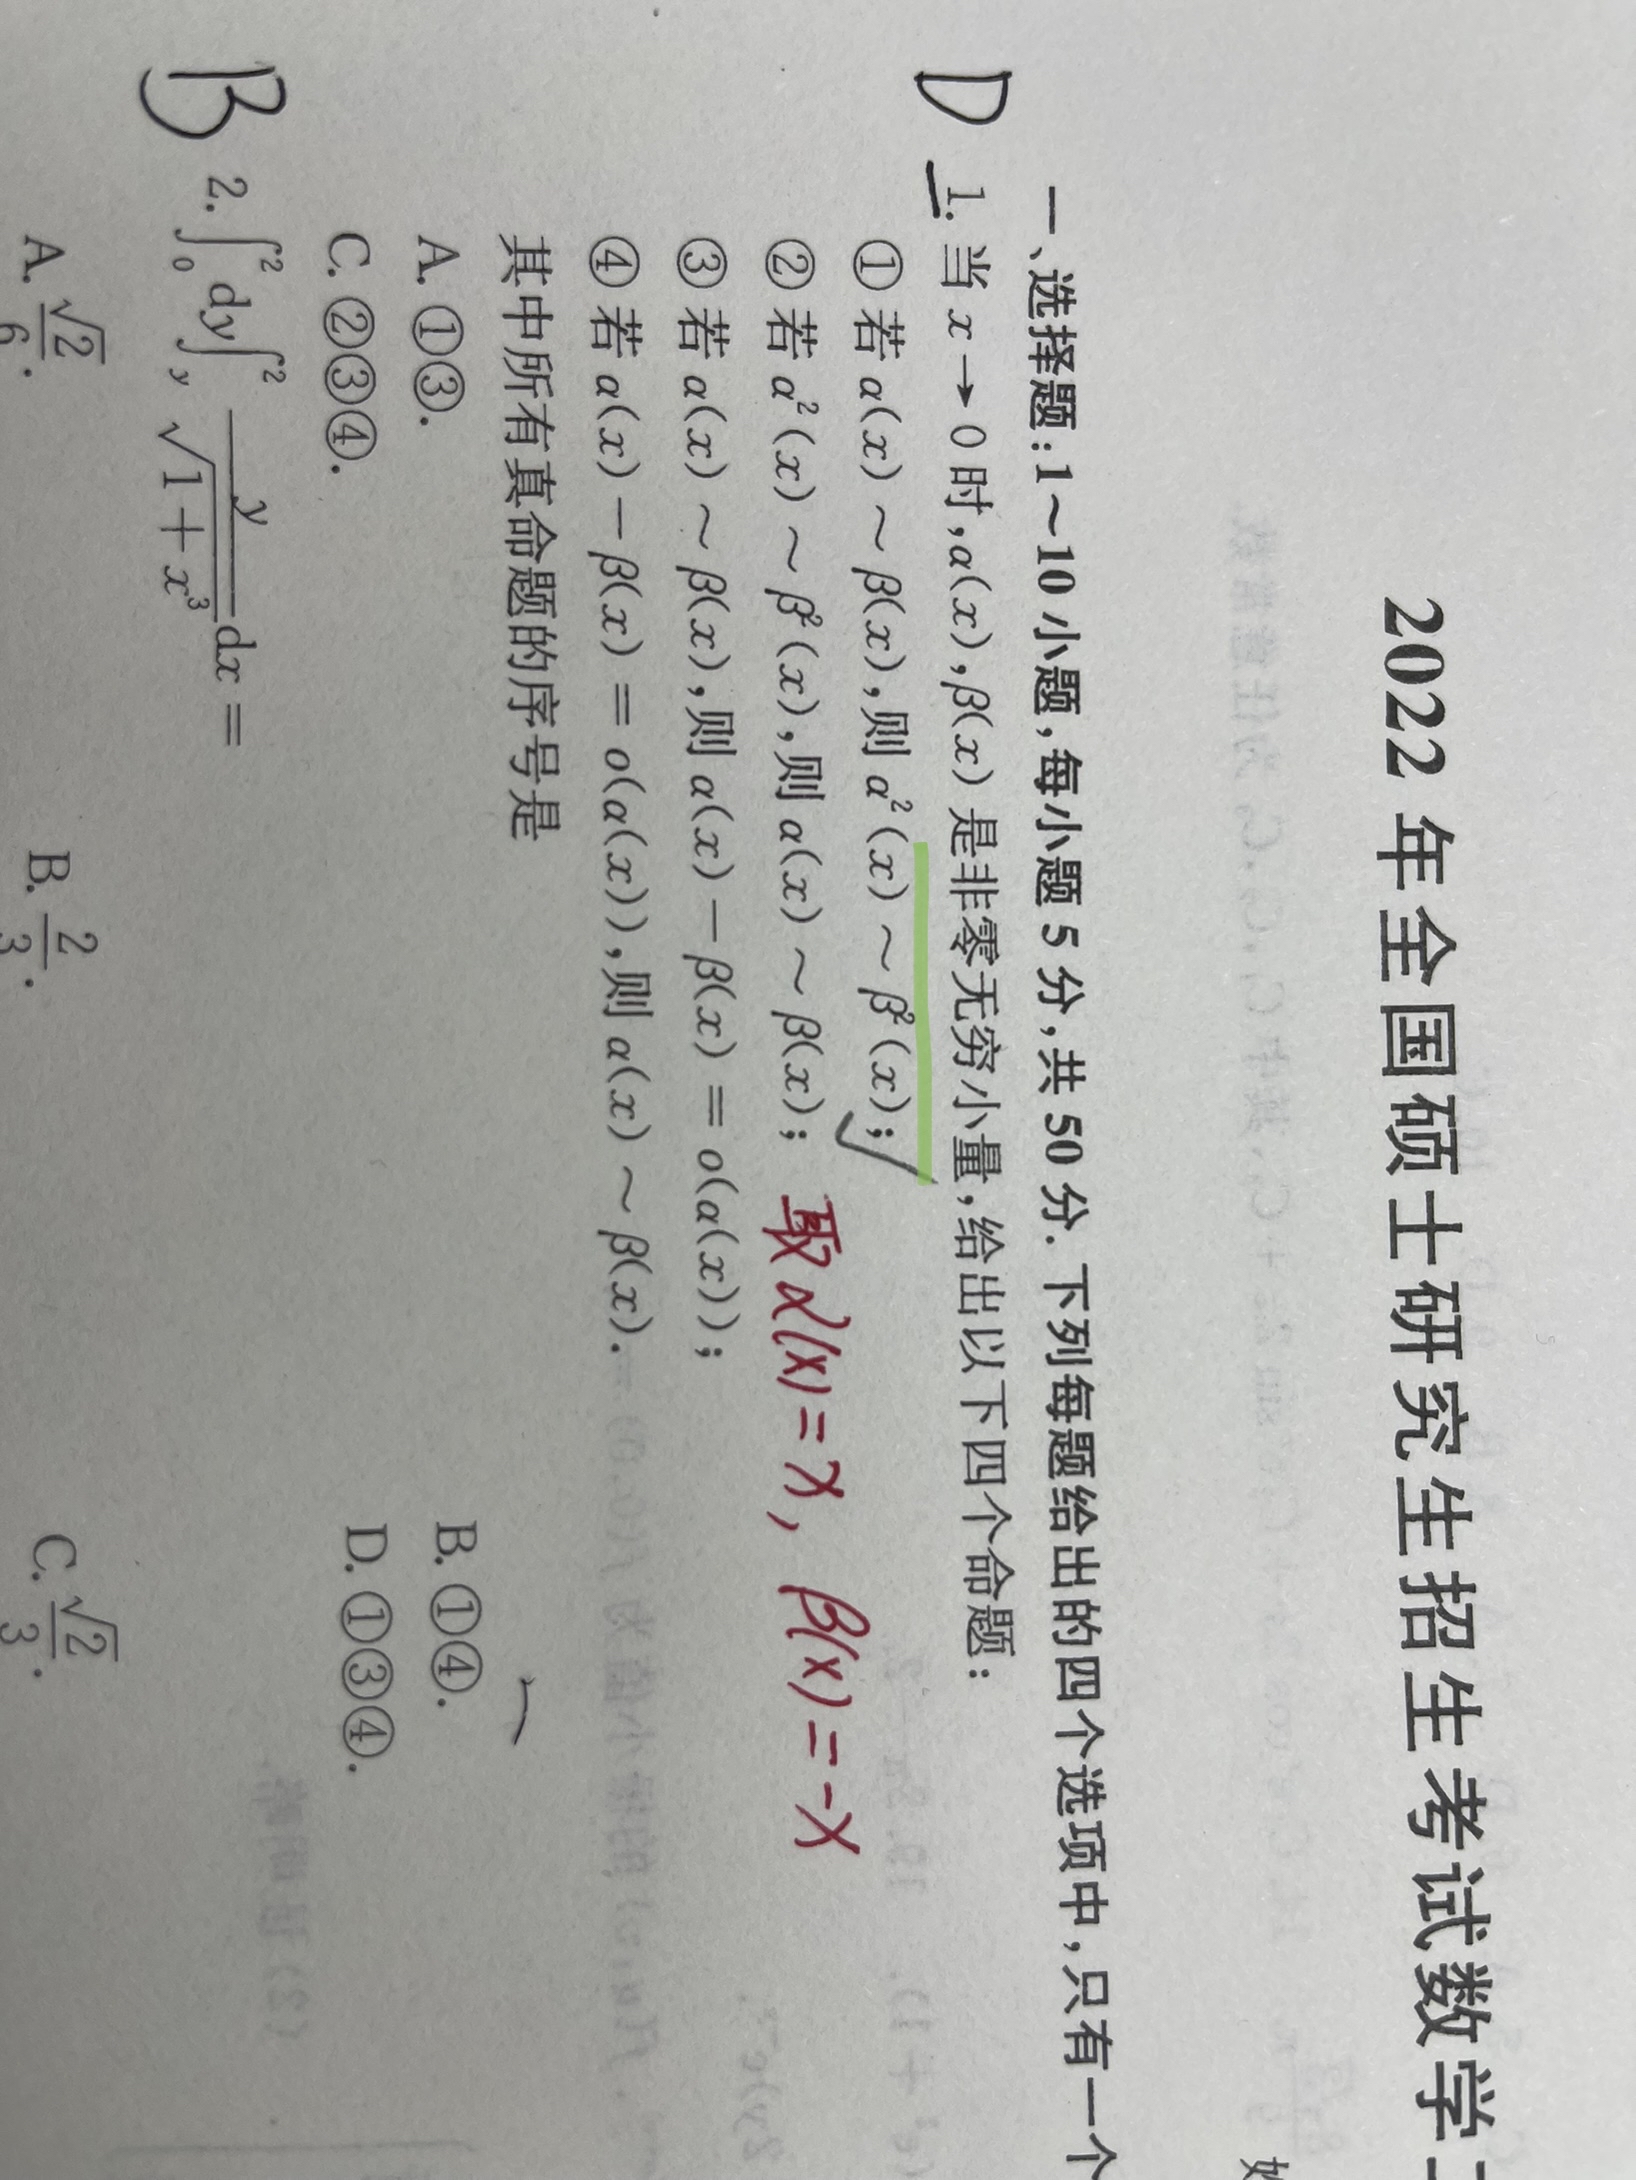 2022 年全国硕士研究生招生考试数学
一、选择题:1~10 小题,每小题 5 分,共 50 分. 下列每题给出的四个选项中,只有一个
D 1. 当 x→0 时,α(x),β(x) 是非零无穷小量,给出以下四个命题:
① 若 α(x) ~ β(x),则 α²(x) ~ β²(x); ✓
② 若 α²(x) ~ β²(x),则 α(x) ~ β(x); 取 α(x)=x, β(x)=-x
③ 若 α(x) ~ β(x),则 α(x) - β(x) = o(α(x));
④ 若 α(x) - β(x) = o(α(x)),则 α(x) ~ β(x).
其中所有真命题的序号是
A. ①③. B. ①④.
C. ②③④. D. ①③④.
B 2. ∫₀² dy ∫_y² y/√(1+x³) dx =
A. √2/6. B. 2/3. C. √2/3.